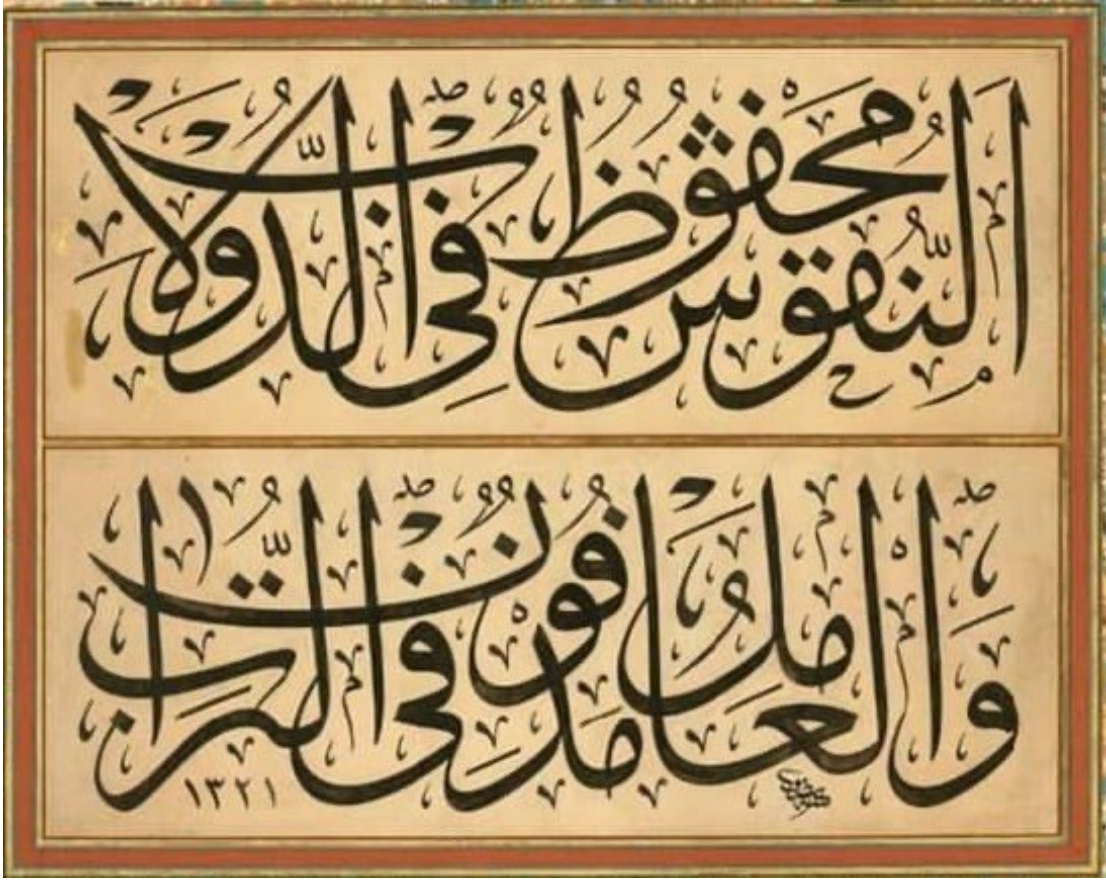 اَلنُّقُوشُ مَحْفُوظٌ فِي الدُّولَابِ
وَالْعَامِلُ مَدْفُونٌ فِي التُّرَابِ
١٣٢١